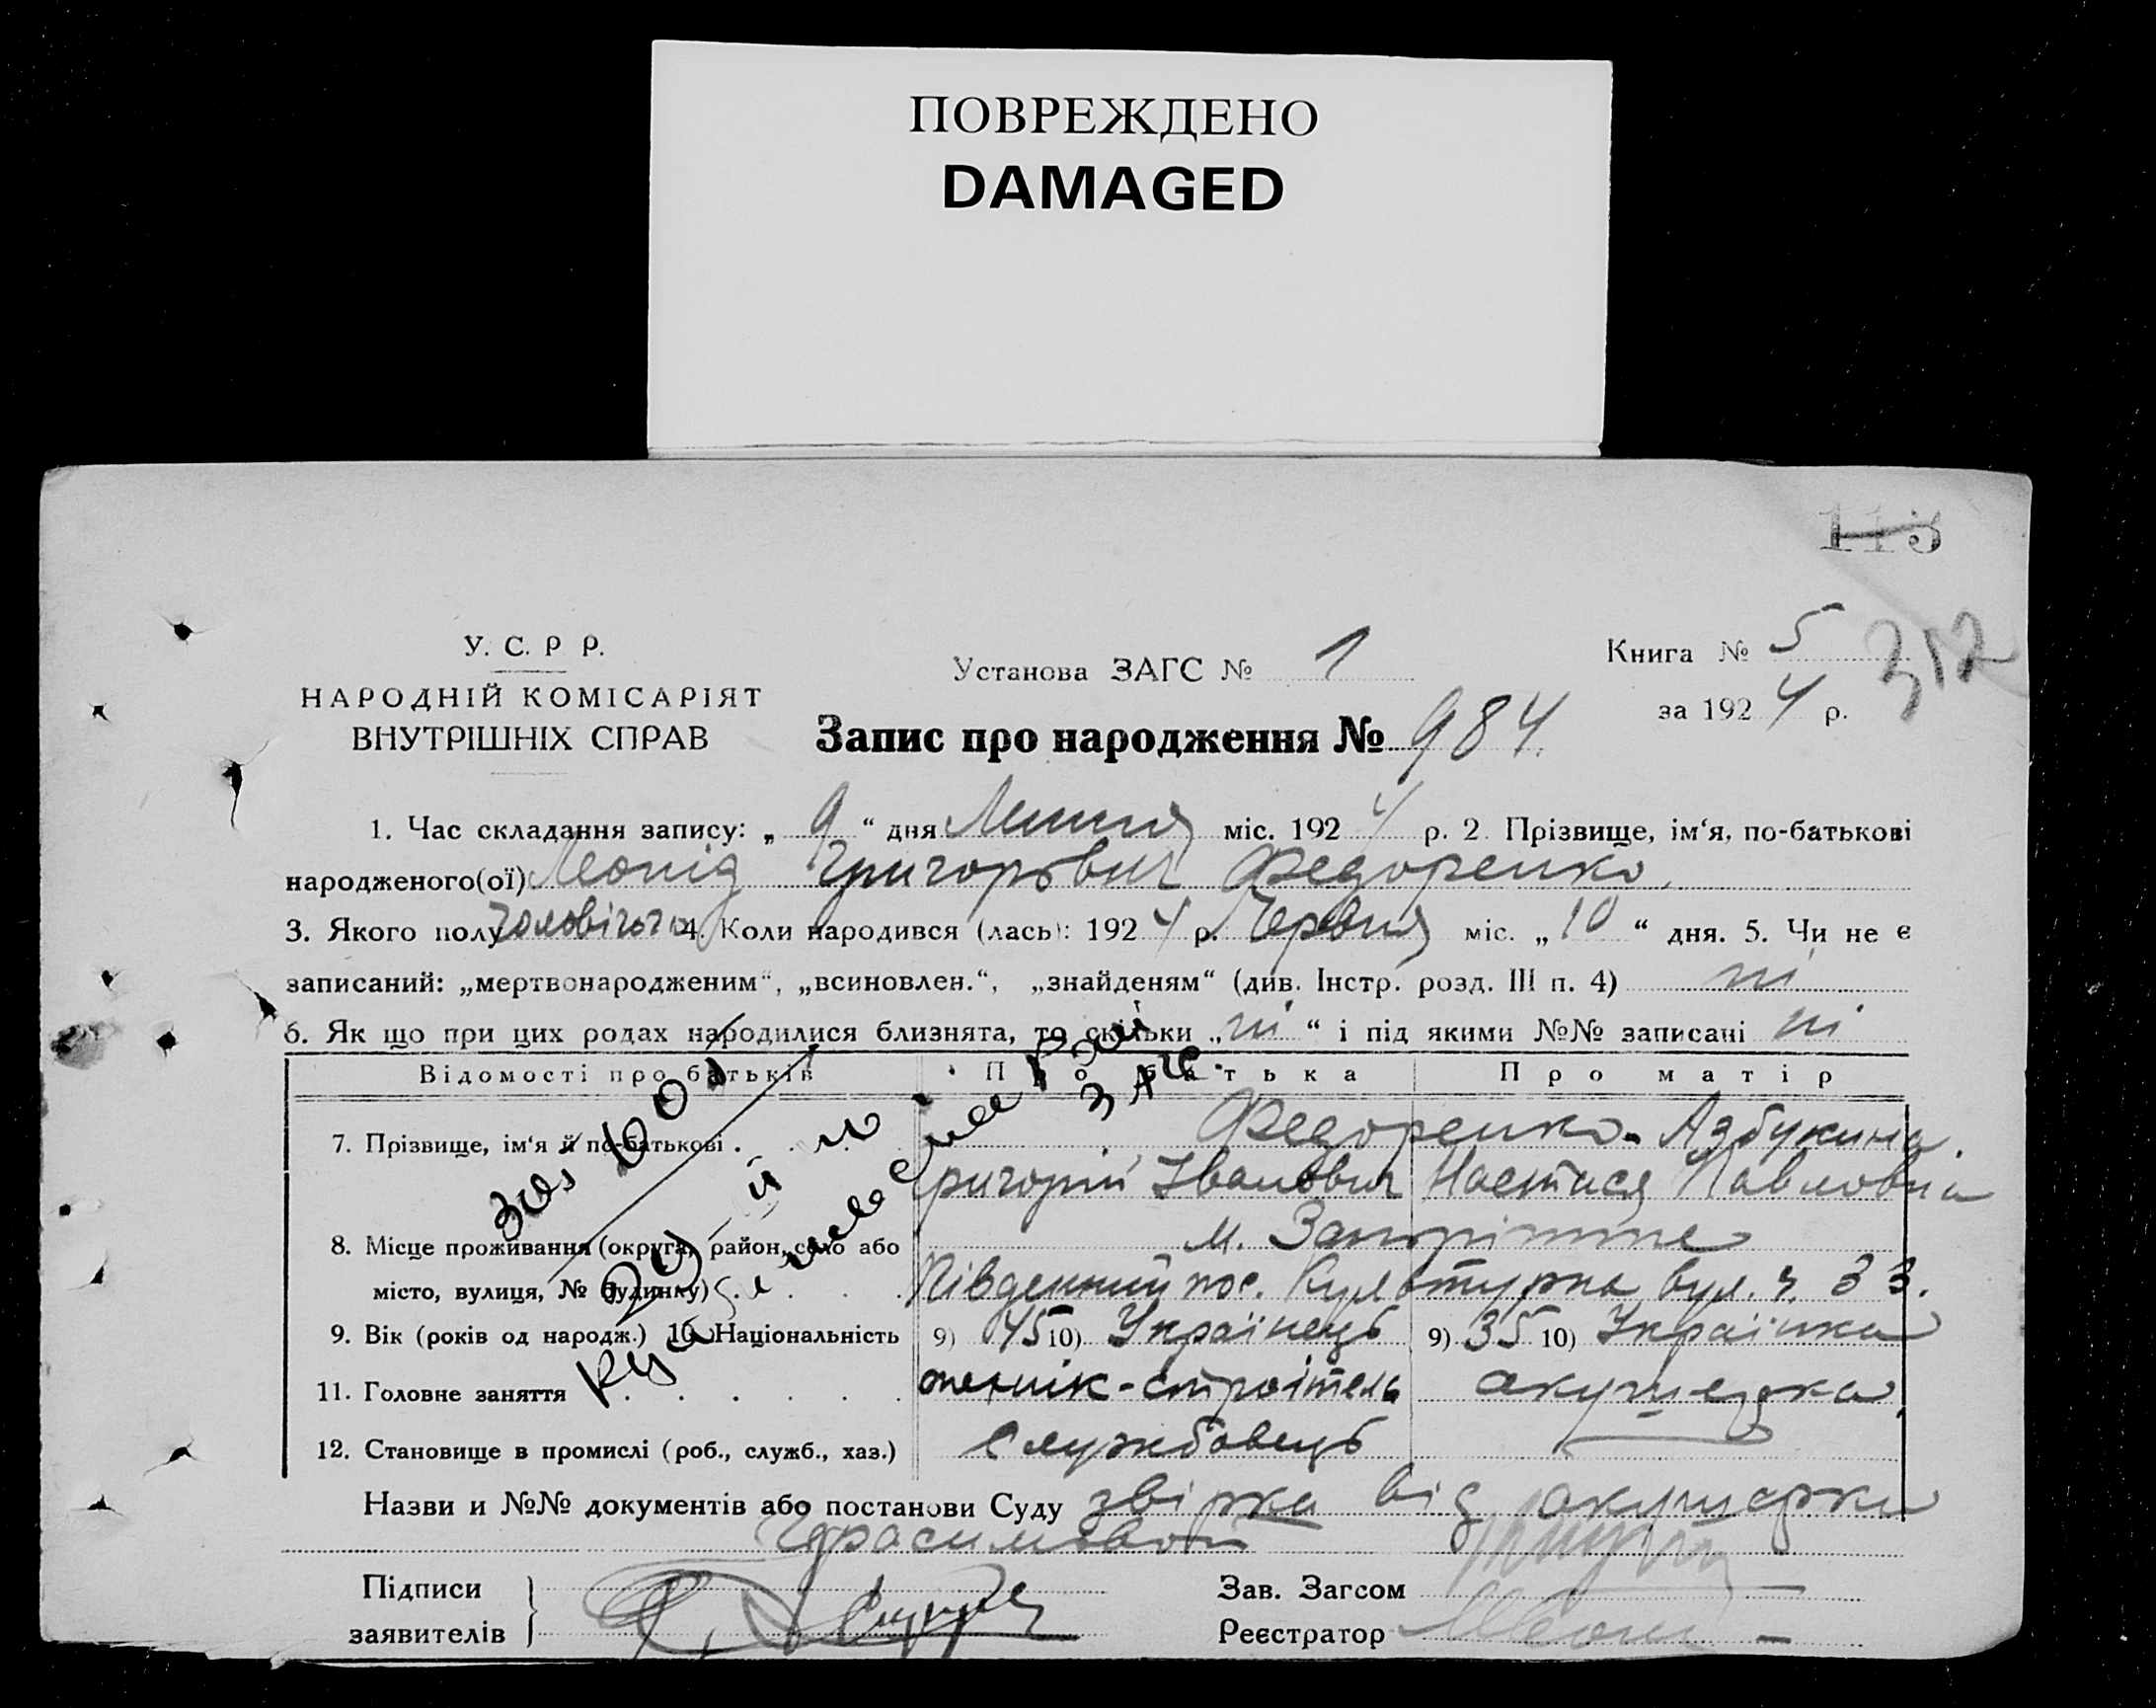 ПОВРЕЖДЕНО
DAMAGED
113
У. С. Р Р.
НАРОДНІЙ КОМІСАРІЯТ
ВНУТРІШНІХ СПРАВ
Установа ЗАГС № 1
Книга № 5
312
за 1924 р.
Запис про народження № 984.
1. Час складання запису: „ 9 “ дня Липня міс. 1924 р. 2 Прізвище, ім‘я, по-батькові
народженого(ої) Леонід Григорович Федоренко.
3. Якого полу чоловічого 4. Коли народився (лась): 1924 р. Червня міс. „ 10 “ дня. 5. Чи не є
записаний: „мертвонародженим“, „всиновлен.“, „знайденям“ (див. Інстр. розд. III п. 4) ні
6. Як що при цих родах народилися близнята, то скільки „ ні “ і під якими №№ записані ні
Відомості про батьків Про батька Про матір
7. Прізвище, ім‘я й по-батькові . Федоренко - Азбукина
ригорій Іванович Настася Павловна
8. Місце проживання (округа, район, село або м. Запоріжже
місто, вулиця, № будинку) Південний пос. Культурна вул. ч. 33.
9. Вік (років од народж.) 10. Національність 9) 45 10) Українець 9) 35 10) Українка
11. Головне заняття технік-строітель акушерка
12. Становище в промислі (роб., служб., хаз.) Службовець
Назви и №№ документів або постанови Суду звірка від акушерки
Герасимової
Підписи
заявителів
Зав. Загсом
Реєстратор